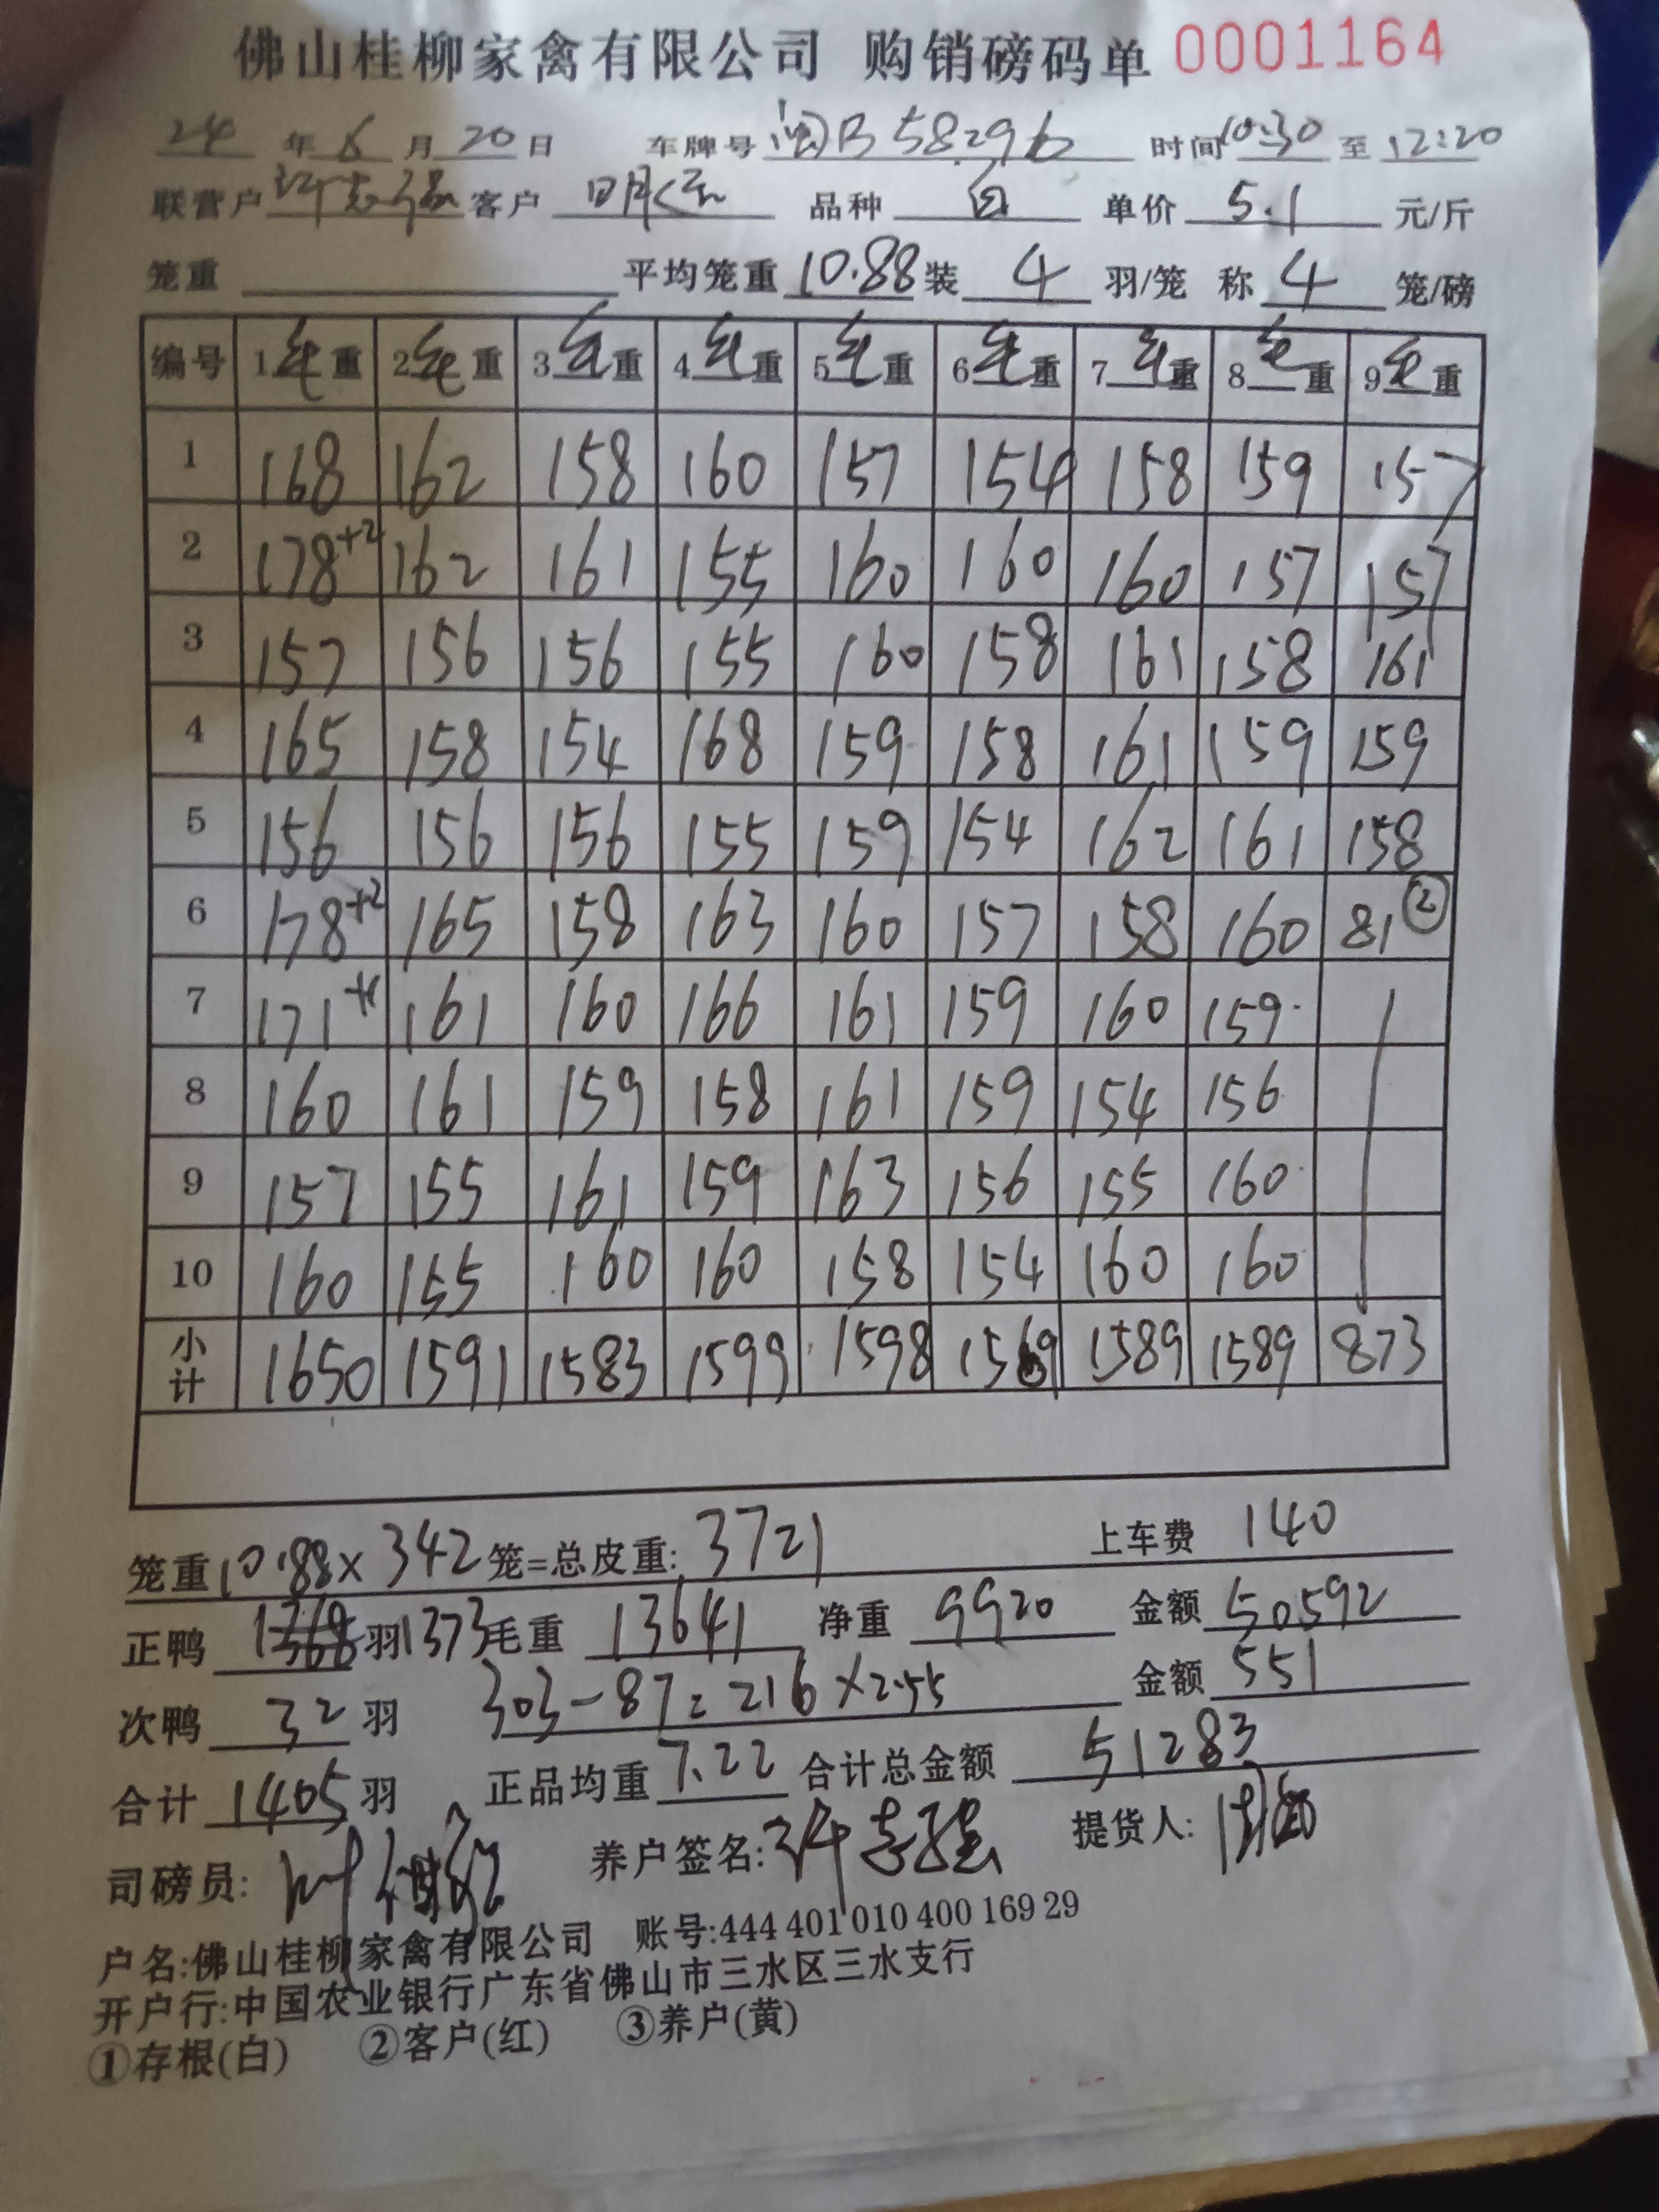 佛山桂柳家禽有限公司 购销磅码单 0001164
24年6月20日 车牌号闽B58296 时间10:30至12:20
联营户 客户 品种白 单价5.1元/斤
笼重 平均笼重10.88装4羽/笼 称4笼/磅
编号 1毛重 2毛重 3毛重 4毛重 5毛重 6毛重 7毛重 8毛重 9毛重
1 168 162 158 160 157 154 158 159 157
2 178+2 162 161 155 160 160 160 157 157
3 157 156 156 155 160 158 161 158 161
4 165 158 154 168 159 158 161 159 159
5 156 156 156 155 159 154 162 161 158
6 178+2 165 158 163 160 157 158 160 81②
7 171+1 161 160 166 161 159 160 159
8 160 161 159 158 161 159 154 156
9 157 155 161 159 163 156 155 160
10 160 155 160 160 158 154 160 160
小计 1650 1591 1583 1599 1598 1569 1589 1589 873
笼重10.88×342笼=总皮重:3721 上车费140
正鸭1368羽1373毛重13641 净重9920 金额50592
次鸭32羽 303-87=216×2.55 金额551
合计1405羽 正品均重7.22 合计总金额51283
司磅员: 养户签名: 提货人:
户名:佛山桂柳家禽有限公司 账号:444 401 010 400 169 29
开户行:中国农业银行广东省佛山市三水区三水支行
①存根(白) ②客户(红) ③养户(黄)